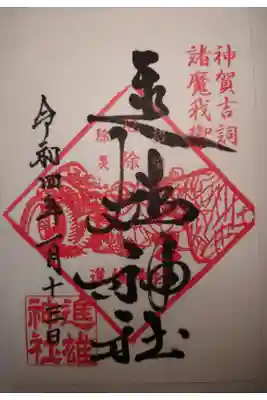 神賀吉詞
諸魔我御
進雄神社
令和四年一月十三日
進雄
神社